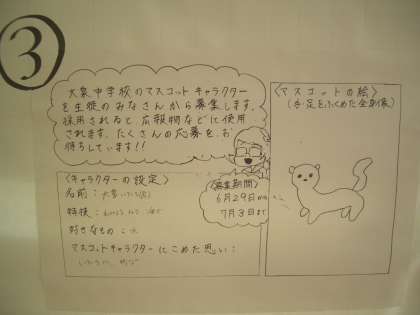 ③
大泉中学校のマスコットキャラクター
を生徒のみなさんから募集します。
採用されると、広報物などに使用
されます。たくさんの応募を、お
待ちしています!!
〈キャラクターの設定〉
名前:
特技:
好きなもの:
マスコットキャラクターにこめた思い:
〈募集期間〉
6月29日から
7月3日まで
〈マスコットの絵〉
(手・足をふくめた全身像)